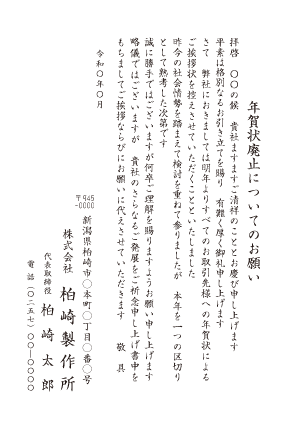 年賀状廃止についてのお願い
拝啓　〇〇の候　貴社ますますご清祥のこととお慶び申し上げます
平素は格別なるお引き立てを賜り　有難く厚く御礼申し上げます
さて　弊社におきましては明年よりすべてのお取引先様への年賀状による
ご挨拶状を控えさせていただくことといたしました
昨今の社会情勢を踏まえて検討を重ねて参りましたが　本年を一つの区切り
として熟考した次第です
誠に勝手ではございますが何卒ご理解を賜りますようお願い申し上げます
略儀ではございますが　貴社のさらなるご発展をご祈念申し上げ書中を
もちましてご挨拶ならびにお願いに代えさせていただきます　敬具
令和〇年〇月
〒945-0000
新潟県柏崎市〇本町〇丁目〇番〇号
株式会社　柏崎製作所
代表取締役　柏崎太郎
電話（〇二五七）〇〇ー〇〇〇〇